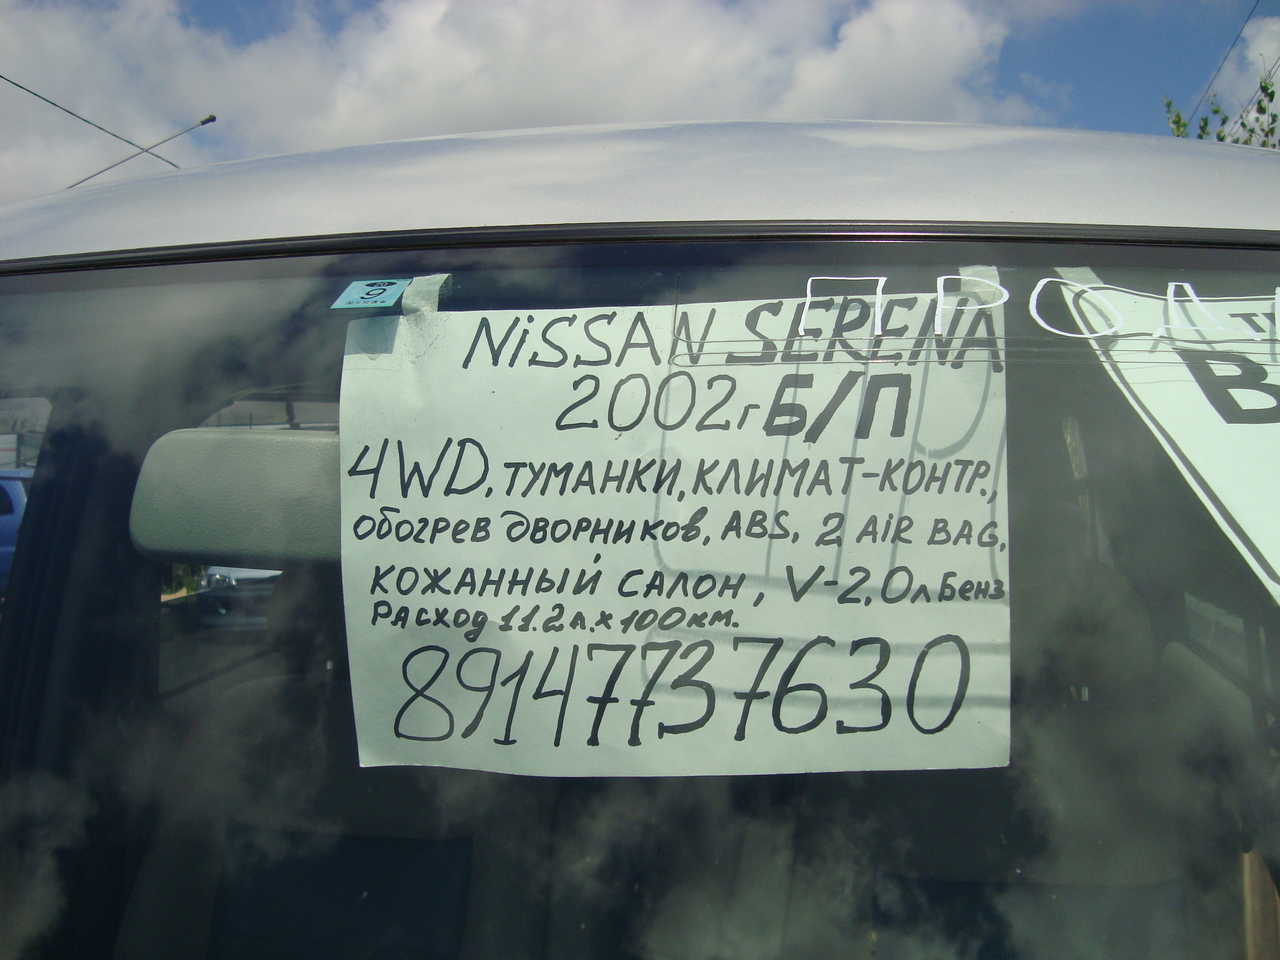 NiSSAN SERENA
2002г Б/П
4WD, ТУМАНКИ, КЛИМАТ-КОНТР.,
ОБОГРЕВ ДВОРНИКОВ, ABS, 2 AiR BAG,
КОЖАННЫЙ САЛОН, V-2,0л Бенз
РАСХОД 11.2л х 100км.
89147737630
ПРОДА
9
В